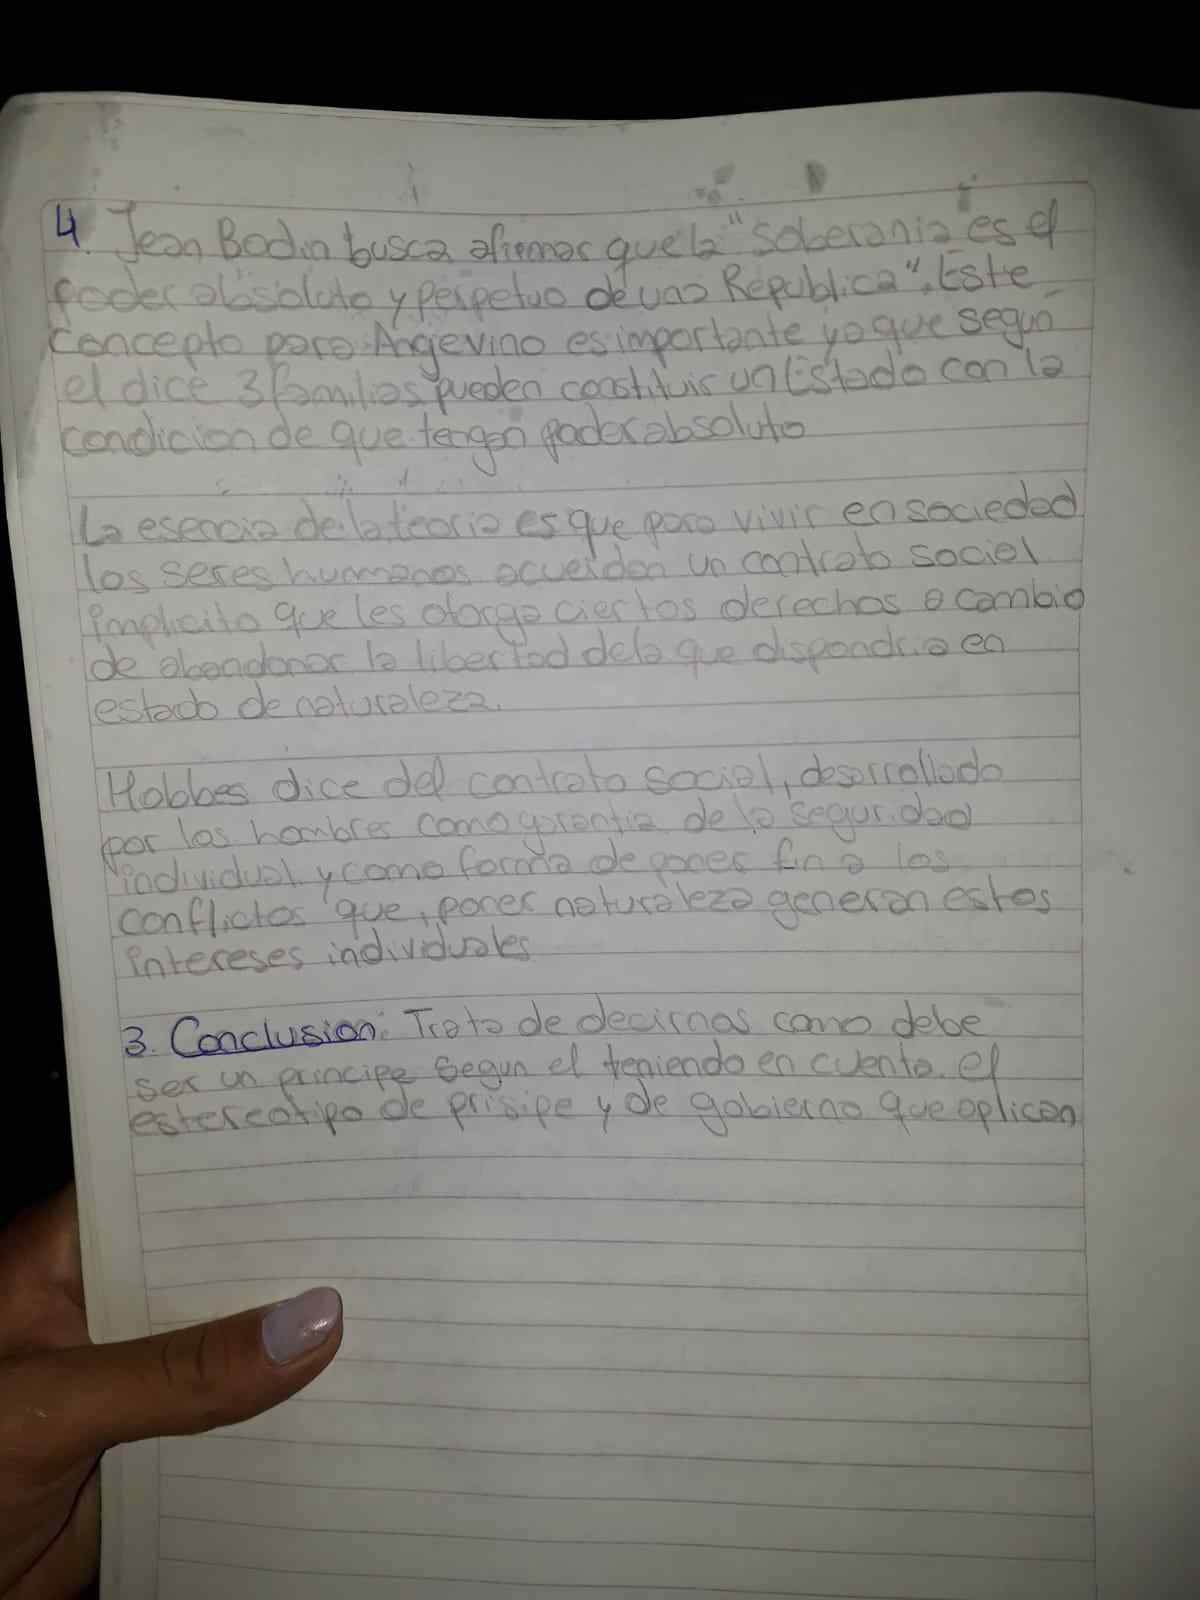 4. Jean Bodin busca afirmar que la "soberania es el
poder absoluto y perpetuo de una Republica". Este
concepto para Angevino es importante ya que segun
el dice 3 familias pueden constituir un Estado con la
condicion de que tengan poder absoluto
La esencia de la teoria es que para vivir en sociedad
los seres humanos acuerdan un contrato social
implicito que les otorga ciertos derechos a cambio
de abandonar la libertad de la que dispondria en
estado de naturaleza.
Hobbes dice del contrato social, desarrollado
por los hombres como garantia de la seguridad
individual y como forma de poner fin a los
conflictos que, poner naturaleza generan estos
intereses individuales
3. Conclusion: Trata de decirnos como debe
ser un principe segun el teniendo en cuenta el
estereotipo de prisipe y de gobierno que aplican